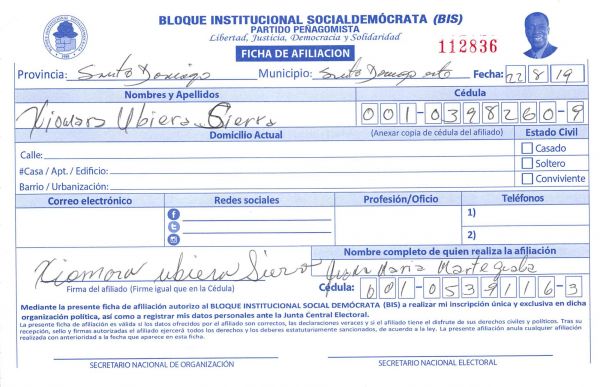 BLOQUE INSTITUCIONAL SOCIALDEMÓCRATA (BIS)
PARTIDO PEÑAGOMISTA
Libertad, Justicia, Democracia y Solidaridad
FICHA DE AFILIACION
112836
Provincia: Santo Domingo Municipio: Santo Domingo este Fecha: 22 8 19
Nombres y Apellidos Cédula
Xiomara Ubiera Sierra 001-0398260-9
Domicilio Actual (Anexar copia de cédula del afiliado) Estado Civil
Calle: Casado
#Casa / Apt. / Edificio: Soltero
Barrio / Urbanización: Conviviente
Correo electrónico Redes sociales Profesión/Oficio Teléfonos
1)
2)
Nombre completo de quien realiza la afiliación
Xiomara Ubiera Sierra Juan Maria
Firma del afiliado (Firme igual que en la Cédula) Cédula: 001-0539116-3
Mediante la presente ficha de afiliación autorizo al BLOQUE INSTITUCIONAL SOCIAL DEMÓCRATA (BIS) a realizar mi inscripción única y exclusiva en dicha
organización política, así como a registrar mis datos personales ante la Junta Central Electoral.
La presente ficha de afiliación es válida si los datos ofrecidos por el afiliado son correctos, las declaraciones veraces y si el afiliado tiene el disfrute de sus derechos civiles y políticos. Tras su
recepción, sello y firmas autorizadas el afiliado ejercerá todos los derechos y los deberes estatutariamente sancionados, de acuerdo a la ley. La presente afiliación anula cualquier afiliación
realizada con anterioridad a la fecha que aparece en esta ficha.
SECRETARIO NACIONAL DE ORGANIZACIÓN SECRETARIO NACIONAL ELECTORAL